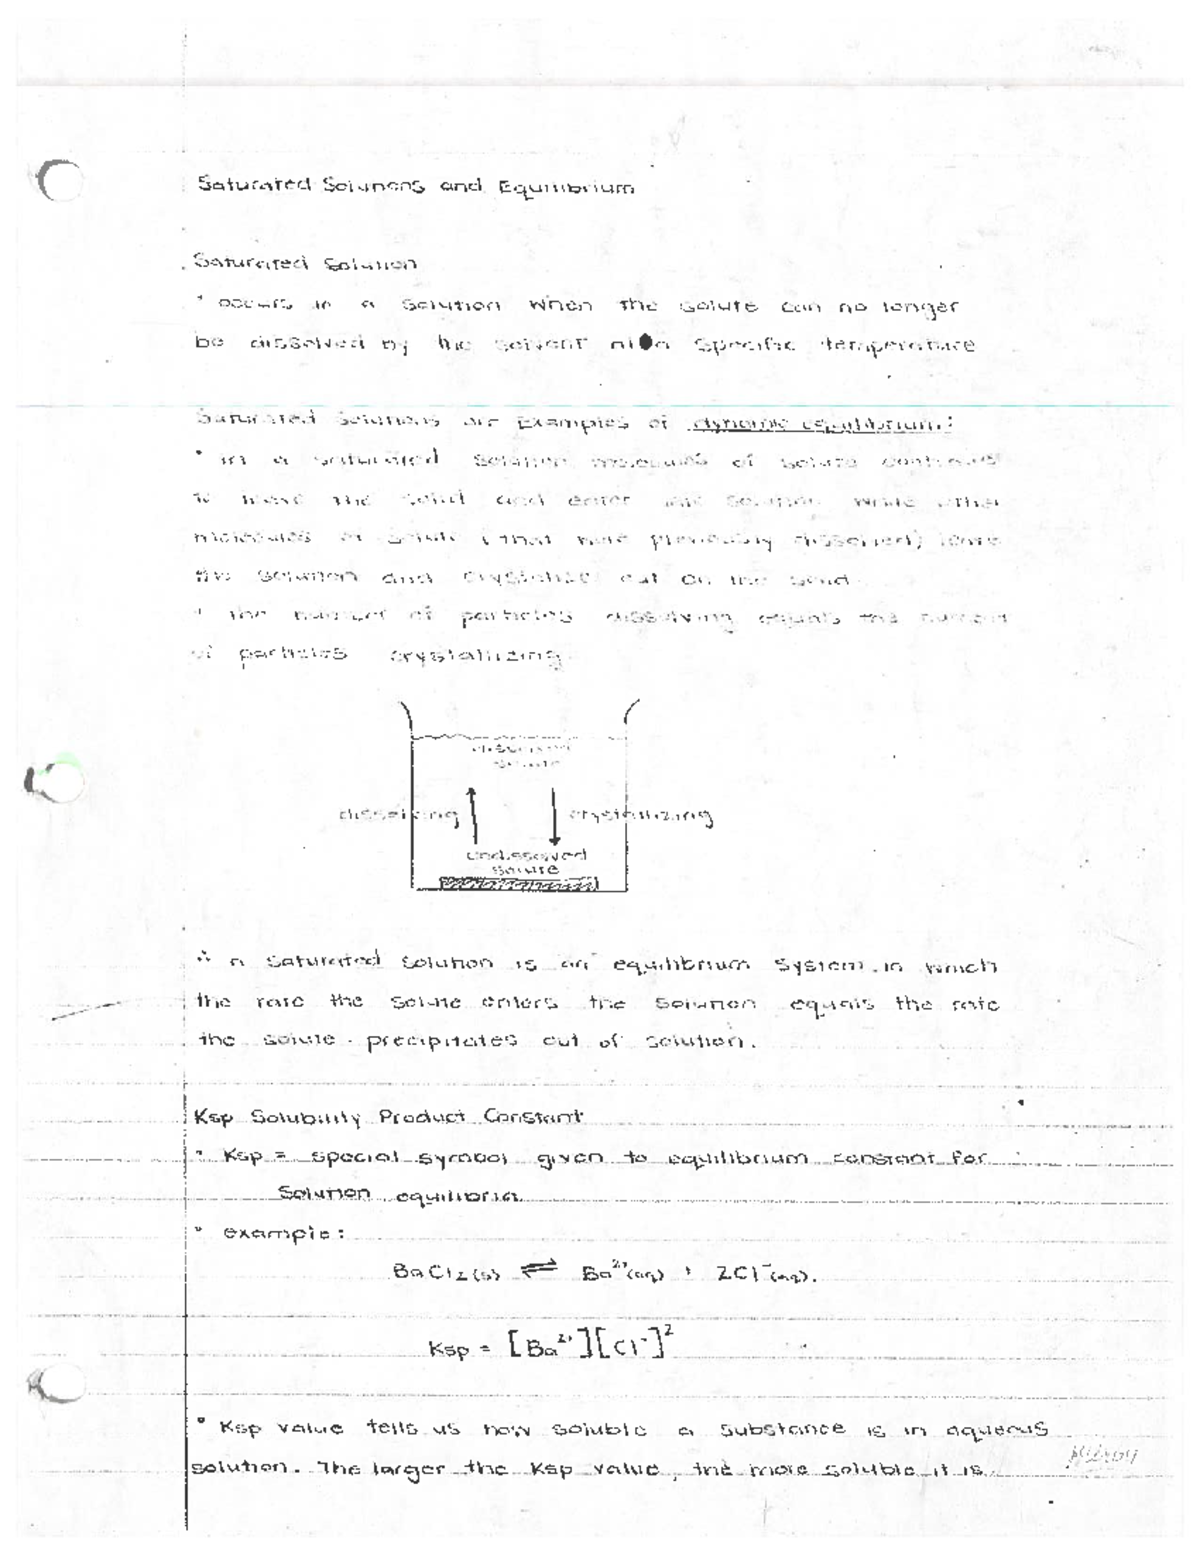 Saturated Solutions and Equilibrium
Saturated Solution
• occurs in a solution when the solute can no longer
be dissolved by the solvent at a specific temperature
Saturated Solutions are Examples of dynamic equilibrium:
• in a saturated solution molecules of solute continues
to leave the solid and enter the solution while other
molecules of solute (that were previously dissolved) leave
the solution and crystallize out on the solid
• the number of particles dissolving equals the number
of particles crystallizing.
dissolved
solute
dissolving crystallizing
undissolved
solute
∴ a saturated solution is an equilibrium system in which
the rate the solute enters the solution equals the rate
the solute precipitates out of solution.
Ksp Solubility Product Constant
• Ksp = special symbol given to equilibrium constant for
solution equilibria.
• example:
BaCl₂(s) ⇌ Ba²⁺(aq) + 2Cl⁻(aq).
Ksp = [Ba²⁺][Cl⁻]²
• Ksp value tells us how soluble a substance is in aqueous
solution. The larger the Ksp value, the more soluble it is.